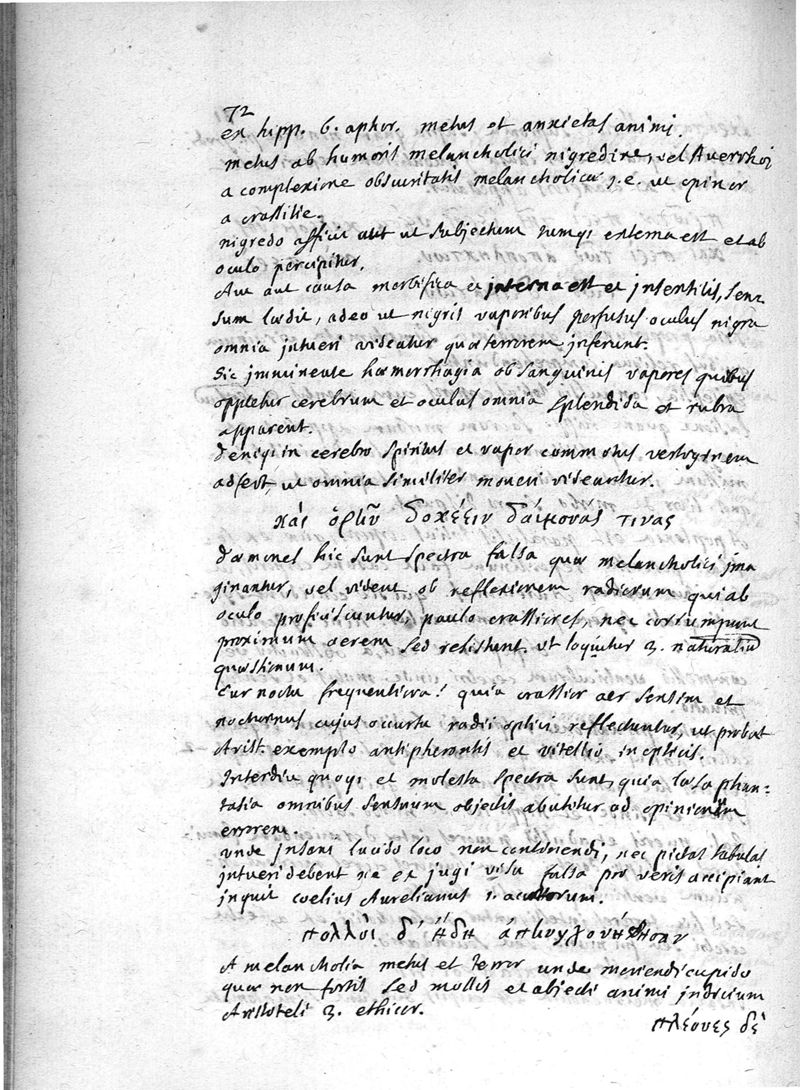 72
ex hipp. 6. aphor. metus et anxietas animi.
metus ab humoris melancholici nigredine, vel Averrhoi
a complexione obscuritatis melancholicæ j.e. ut opinor
a crassitie.
nigredo afficit aut ut subjectum numqi externa est et ab
oculo percipitur,
Aut aut causa morbifica et interna est et insensilis, sen=
sum lædit, adeo ut nigris vaporibus perfusus oculus nigra
omnia jntueri videatur quæ terrorem jnferunt.
Sic jmminente hæmorrhagia ob sanguinis vapores quibus
oppletur cerebrum et oculus omnia splendida et rubra
apparent.
deniqi in cerebro spiritus et vapor commotus vertiginem
adfert, ut omnia similiter moveri videantur.
καὶ ὁρῆν δοκέειν δαίμονας τινας
dæmones hic sunt spectra falsa quæ melancholici jma
ginantur, vel vident ob reflexionem radiorum qui ab
oculo proficiscuntur, paulo crassiores, nec corrumpunt
proximum aerem sed resistunt. ut loquitur 3. naturaliū
quæstionum.
Cur noctu frequentiora? quia crassior aer sensim et
nocturnus cujus occursu radii optici reflectuntur, ut probat
Arist. exemplo antipherontis et vitellio in opticis.
Interdiu quoqi et molesta spectra sunt, quia læsa phan=
tasia omnibus sensuum objectis abutitur ad opinionum
errorem.
unde jnsani lucido loco non continendi, nec pictas tabulas
jntueri debent ne ex jugi visu falsa pro veris accipiant
jnquit coelius Aurelianus 1. acutorum.
πολλοὶ δ' ἤδη ἀπηγχονήθησαν
A melancholia metus et terror unde moriendi cupido
quæ non fortis sed mollis et abjecti animi jndicium
Aristoteli 3. ethicor.
πλέονες δὲ